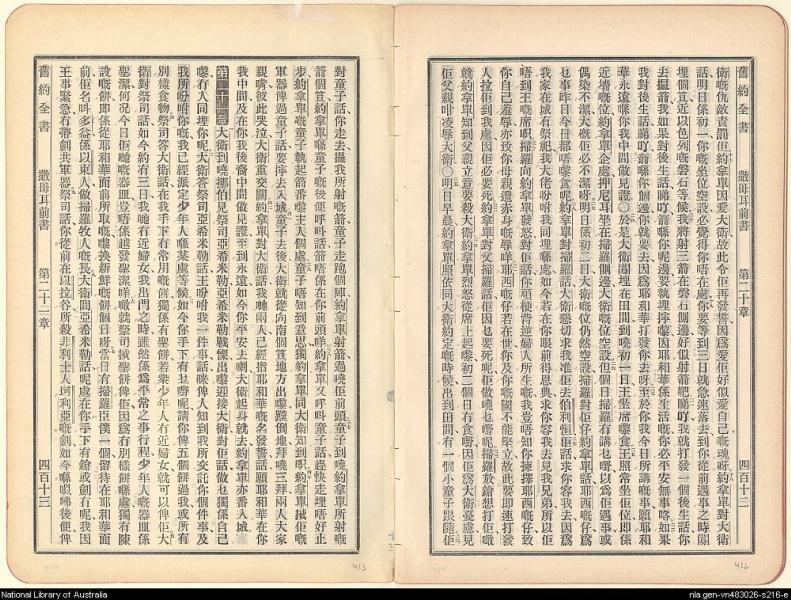 舊約全書 撒母耳前書 第二十章 四百十二
衛嘅仇敵責罰佢約拿單因愛大衛故此令佢再發誓因爲愛佢好似愛自己嘅魂呀約拿單對大衛
話明日係初一你嘅坐位空設必覺得你唔在處你要等到三日就急速落去到你從前遇事之時關
埋個笪近以色列嘅磐石等候我將射三箭在磐石側邊好似射箭靶
去搵箭我如果對後生話睇吖箭喺你呢邊
我對後生話睇吖箭喺你個邊你就要去因爲耶和華打發你去呀至於你我今日所講嘅事願耶和
華永遠喺你我中間做見證○於是大衛關埋在田間到嘵初一日王坐席嚟食王照常坐佢位即係
近墻嘅位約拿單企處押尼珥坐在掃羅側邊大衛嘅位空設但個日掃羅冇講乜嘢以爲佢遇事或
偶染不潔大衛佢必不潔呀明日係初二日大衛嘅位仍然空設掃羅對佢仔約拿單話耶西嘅仔爲
乜事昨日今日都唔嚟食呢約拿單對掃羅話大衛懇切求我准佢去伯利恒佢話求你容我去因爲
我家在城有祭祀我大佬吩咐我同埋喺處如今若在你眼前得恩典求你容我去見我兄弟所以佢
唔到王嘅席呮掃羅向約拿單發怒對佢話你頑梗背逆婦人所生嘅我豈唔知你揀擇耶西嘅仔致
你自己羞辱亦致你母親遭赤身嘅辱咩耶西嘅仔若在世你及你嘅國不能堅立故此要即速打發
人拉佢到我處因佢必要死約拿單對父掃羅話佢因乜要死呢佢做嘵乜嘢呢掃羅放鎗想打佢噉
就約拿單知到父親立意要殺大衛約拿單烈怒從席上起嚟初二個日冇食嘢因佢爲大衛憂慮見
佢父親咁凌辱大衛○明日早晨約拿單照依同大衛約定嘅時候出到田間有一個小童子跟隨佢
舊約全書 撒母耳前書 第二十一章 四百十三
對童子話你走去搵我所射嘅箭童子走跑個陣約拿單射箭過嘵佢前頭童子到嘵約拿單所射嘅
箭個笪約拿單喺童子嘅後便呼呌話箭唔係在你前頭咩約拿單又呼呌童子話趕快走埋唔好止
步約拿單嘅童子就執起箭番嚟主人個處童子唔知到意思獨約拿單同大衛知到呮約拿單搣佢嘅
軍器俾過童子話要擰去入城童子去後大衛就從向南個笪地方出嚟蹼倒地拜嘵三拜兩人大家
親嘴彼此哭泣大衛重交關約拿單對大衛話我哋兩人已經指耶和華嘅名發誓話願耶和華在你
我中間及在你我後裔中間做見證至到永遠如今你平安去喇大衛起身就去約拿單亦番入城
第二十一章 大衛到嘵挪伯見祭司亞希米勒亞希米勒戰慄出嚟迎接大衛對佢話做乜獨係自己
嚟冇人同埋你呢大衛答祭司亞希米勒話王吩咐我一件事話咪俾人知到我所交託你個件事及
我所吩咐你嘅我已經派定少年人喺某處等候如今你手下有乜嘢呢請你俾五個餅過我或所有
別樣食物祭司答大衛話在我手下冇常用嘅餅獨係有聖餅若衆少年人冇近婦女就可以俾佢大
衛對祭司話如今約有三日我哋冇近婦女我出門之時雖然係爲平常之事行程少年人嘅器皿係
聖潔何況今日佢哋嘅器皿豈唔係越發聖潔咩噉就祭司搣聖餅俾佢因爲冇別樣餅喺處獨有陳
設嘅餅即係從耶和華面前所取嘅換新鮮嘅餅個日呀當日有掃羅臣僕一個留待在耶和華面
前佢名呌多益係以東人做掃羅牧人嘅長大衛問亞希米勒話呢處在你手下有鎗或劍冇呢我因
王事緊急冇帶劍共軍器祭司話你從前在以拉谷所殺非利士人哥利亞嘅劍如今喺
National Library of Australia
nla.gen-vn483026-s216-e